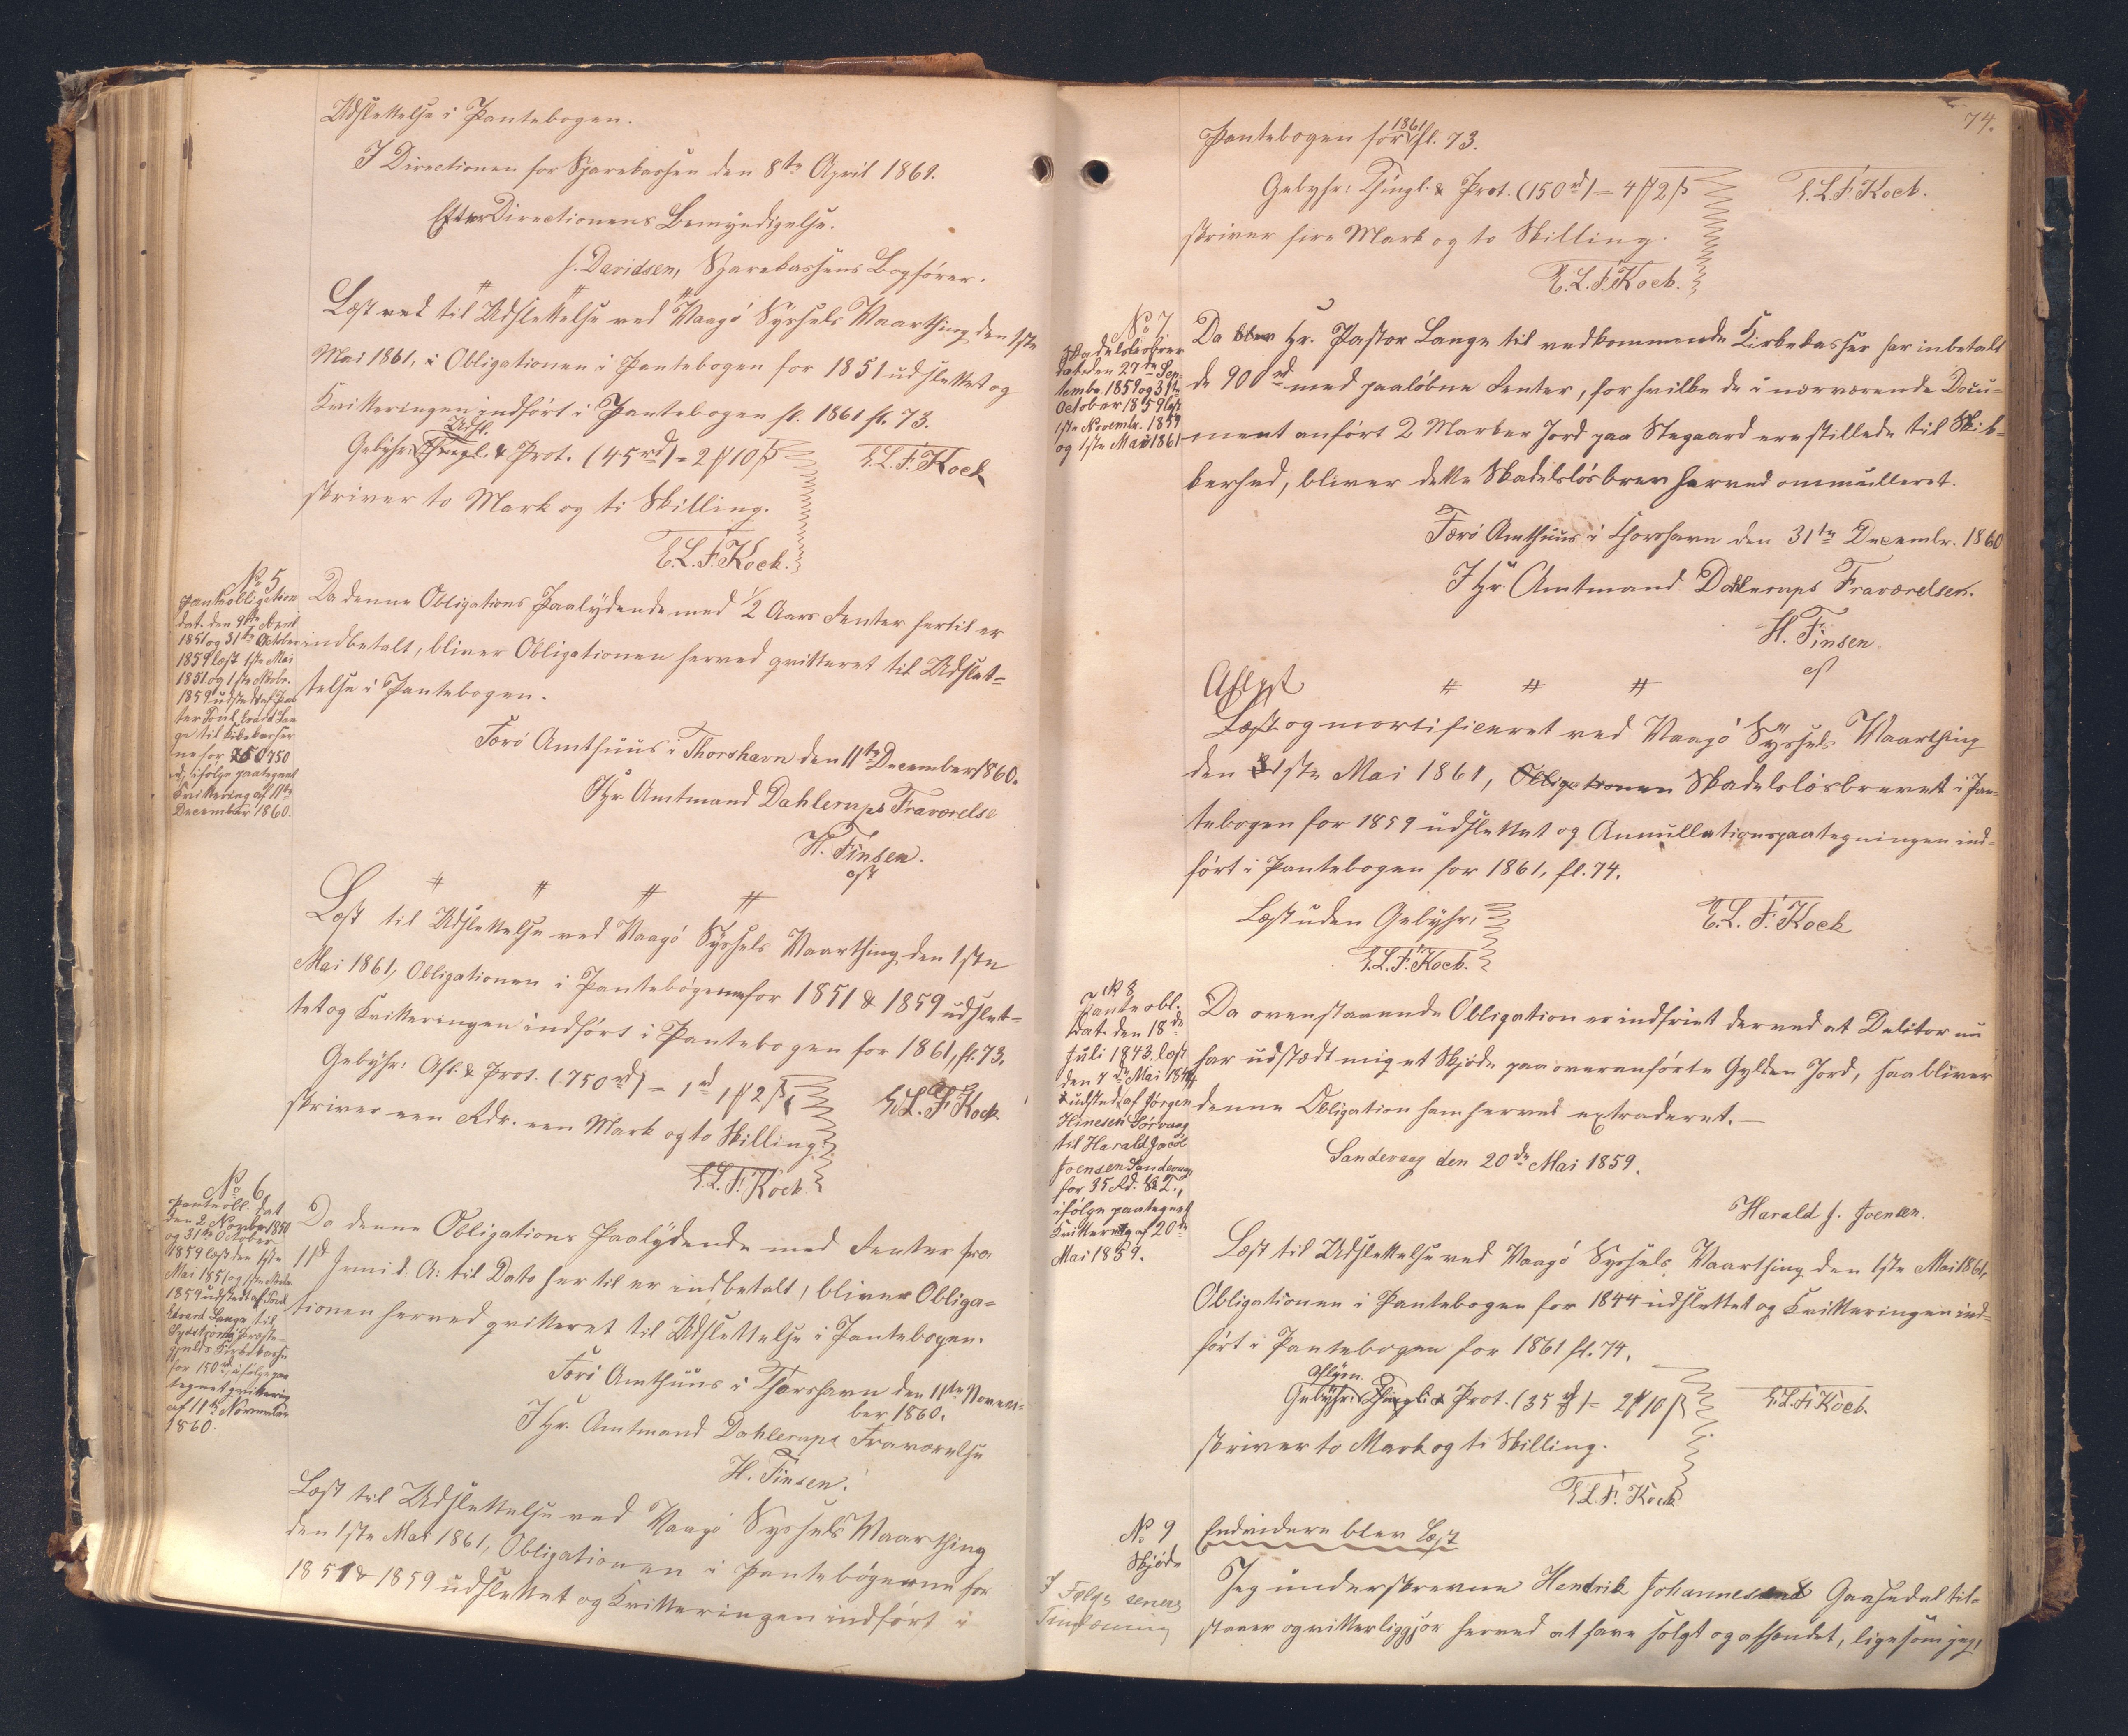 Udslettelse i Pantebogen.
I Directionen for Sparekassen den 8de April 1861.
Efter Directionens Bemyndigelse.
J. Davidsen, Sparekassens Bogfører.
Læst ved til Udslettelse ved Vaagø Syssels Vaarthing den 1ste
Mai 1861, i Obligationen i Pantebogen for 1851 udslettet og
Kvitteringen indført i Pantebogen f. 1861 fl. 73.
Udsl.
Gebyhr: Thingl. & Prot. (45 rd) = 2 # 10 ß
E.L.F. Koch
skriver to Mark og ti Skilling.
E.L.F. Koch.
No 5
Panteobligation
dat. den 9de April
1851 og 31te October
1859 læst 1ste Mai
1851 og 1ste Novbr.
1859 udstedt af Pas
tor Poul Evard Lan
ge til Kirkekasser
ne for 750 750
rd, ifølge paategnet
Kvittering af 11te
December 1860.
Da denne Obligations Paalydende med 1/2 Aars Renter hertil er
indbetalt, bliver Obligationen herved qvitteret til Udslet-
telse i Pantebogen.
Færø Amthuus i Thorshavn den 11te December 1860.
I Hr. Amtmand Dahlerups Fraværelse
H. Finsen.
cst
# # # #
Læst til Udslettelse ved Vaagø Syssels Vaarthing den 1ste
Mai 1861, Obligationen i Pantebøgerne for 1851 & 1859 udslet-
tet og Kvitteringen indført i Pantebogen for 1861, fl. 73.
Gebyhr: Afl. & Prot. (750 rd) = 1 rd 1 # 2 ß
E.L.F. Koch
skriver een Rdr. een Mark og to Skilling.
E.L.F. Koch
No 6
Panteobl. dat
den 2 Novbr 1850
og 31te October
1859 læst den 1ste
Mai 1851 og 1ste Novbr.
1859 udstedt af Poul
Evard Lange til
Sydstrømø Præste-
gjelds Kirkekasse
for 150 rd, ifølge paa
tegnet qvittering
af 11te November
1860.
Da denne Obligations Paalydende med Renter fra
11te Juni d. A. til Dato hertil er indbetalt, bliver Obliga-
tionen herved qvitteret til Udslettelse i Pantebogen.
Færø Amthuus i Thorshavn den 11te Novem-
ber 1860.
I Hr. Amtmand Dahlerups Fraværelse
H. Finsen.
Læst til Udslettelse ved Vaagø Syssels Vaarthing
den 1ste Mai 1861, Obligationen i Pantebøgerne for
1851 & 1859 udslettet og Kvitteringen indført i
74.
Pantebogen for 1861 fl. 73.
Gebyhr: Thingl. & Prot. (150 rd) = 4 # 2 ß
E.L.F. Koch.
skriver fire Mark og to Skilling.
E.L.F. Koch.
No 7.
Skadesløsbrev
dat. den 27de Sep
tembr 1859 og 31te
October 1859 læst
1ste Novembr. 1859
og 1ste Mai 1861
Da blev Hr. Pastor Lange til vedkommende Kirkekasser har inbetalt
de 900 rd med paaløbne Renter, for hvilke de i nærværende Docu-
ment anført 2 Marker Jord paa Stegaard ere stillede til Sik-
kerhed, bliver dette Skadesløsbrev herved annulleret.
Færø Amthuus i Thorshavn den 31te Decembr. 1860
I Hr. Amtmand Dahlerups Fraværelse.
H. Finsen
cst
Aflyst # # #
Læst og mortificeret ved Vaagø Syssels Vaarthing
den 1ste Mai 1861, Obligationen Skadesløsbrevet i Pan-
tebogen for 1859 udslettet og Annullationspaategningen ind-
ført i Pantebogen for 1861, fl. 74.
Læst uden Gebyhr.
E.L.F. Koch
E.L.F. Koch.
No 8
Panteobl.
dat. den 18de
Juli 1843, læst
den 7de Mai 1844
udstedt af Jørgen
Hinesen Sørvaag
til Harald Jacob
Joensen Sandevaag
for 35 Rd. S & T.,
ifølge paategnet
Kvittering af 20de
Mai 1859.
Da ovenstaaende Obligation er indfriet derved at Debitor nu
har udstædt mig et Skjøde paa ovenanførte Gylden Jord, saa bliver
denne Obligation ham herved extraderet.
Sandevaag den 20de Mai 1859.
Harald J. Joensen.
Læst til Udslettelse ved Vaagø Syssels Vaarthing den 1ste Mai 1861,
Obligationen i Pantebogen for 1844 udslettet og Kvitteringen ind-
ført i Pantebogen for 1861 fl. 74.
Aflysn.
Gebyhr: Thingl. & Prot. (35 rd) = 2 # 10 ß
E.L.F. Koch.
skriver to Mark og ti Skilling.
E.L.F. Koch
No 9
Skjøde
Endvidere blev Læst
Jeg underskrevne Hendrik Johannesen Gaasedal til-
staaer og vitterliggjør herved at have solgt og afhændet, ligesom jeg,